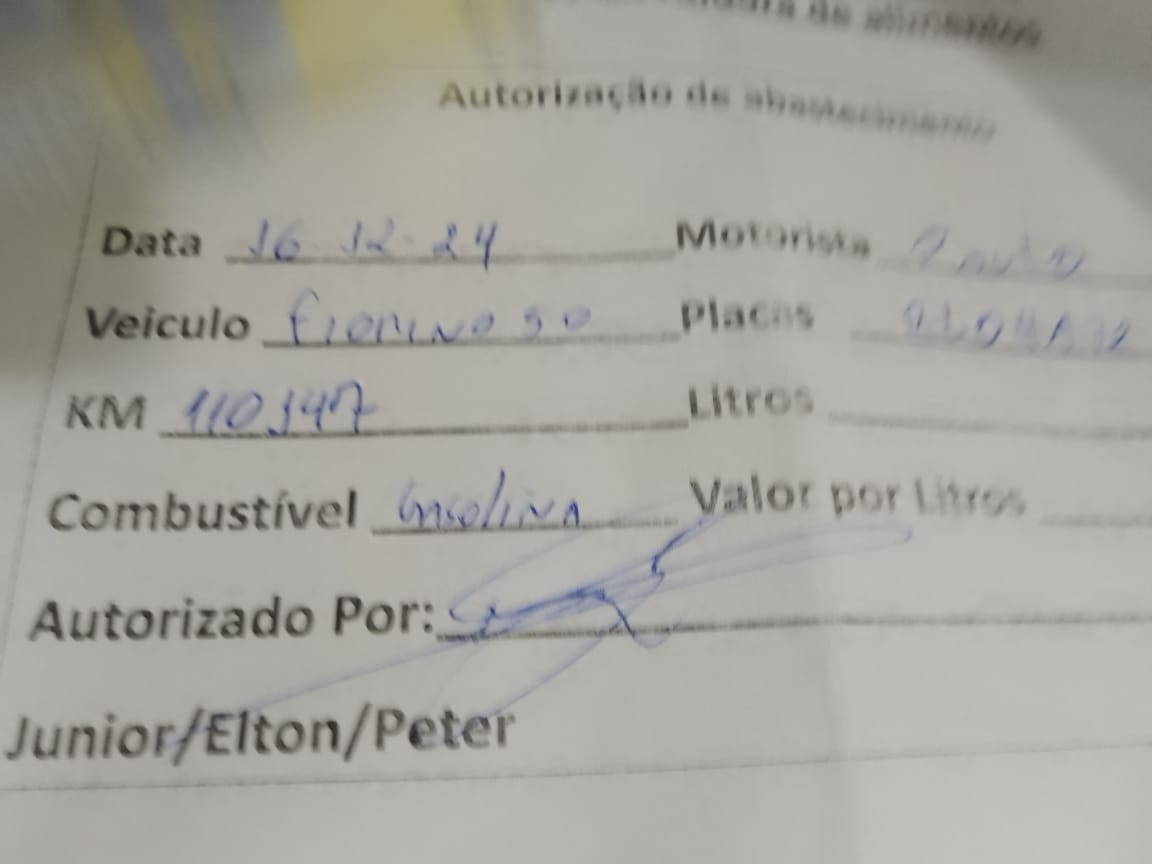 de alimentos
Autorização de abastecimento
Data 16 12 24 Motorista Paulo
Veiculo Fiorino 50 Placas
KM 110347 Litros
Combustível Gasolina Valor por Litros
Autorizado Por:
Junior/Elton/Peter